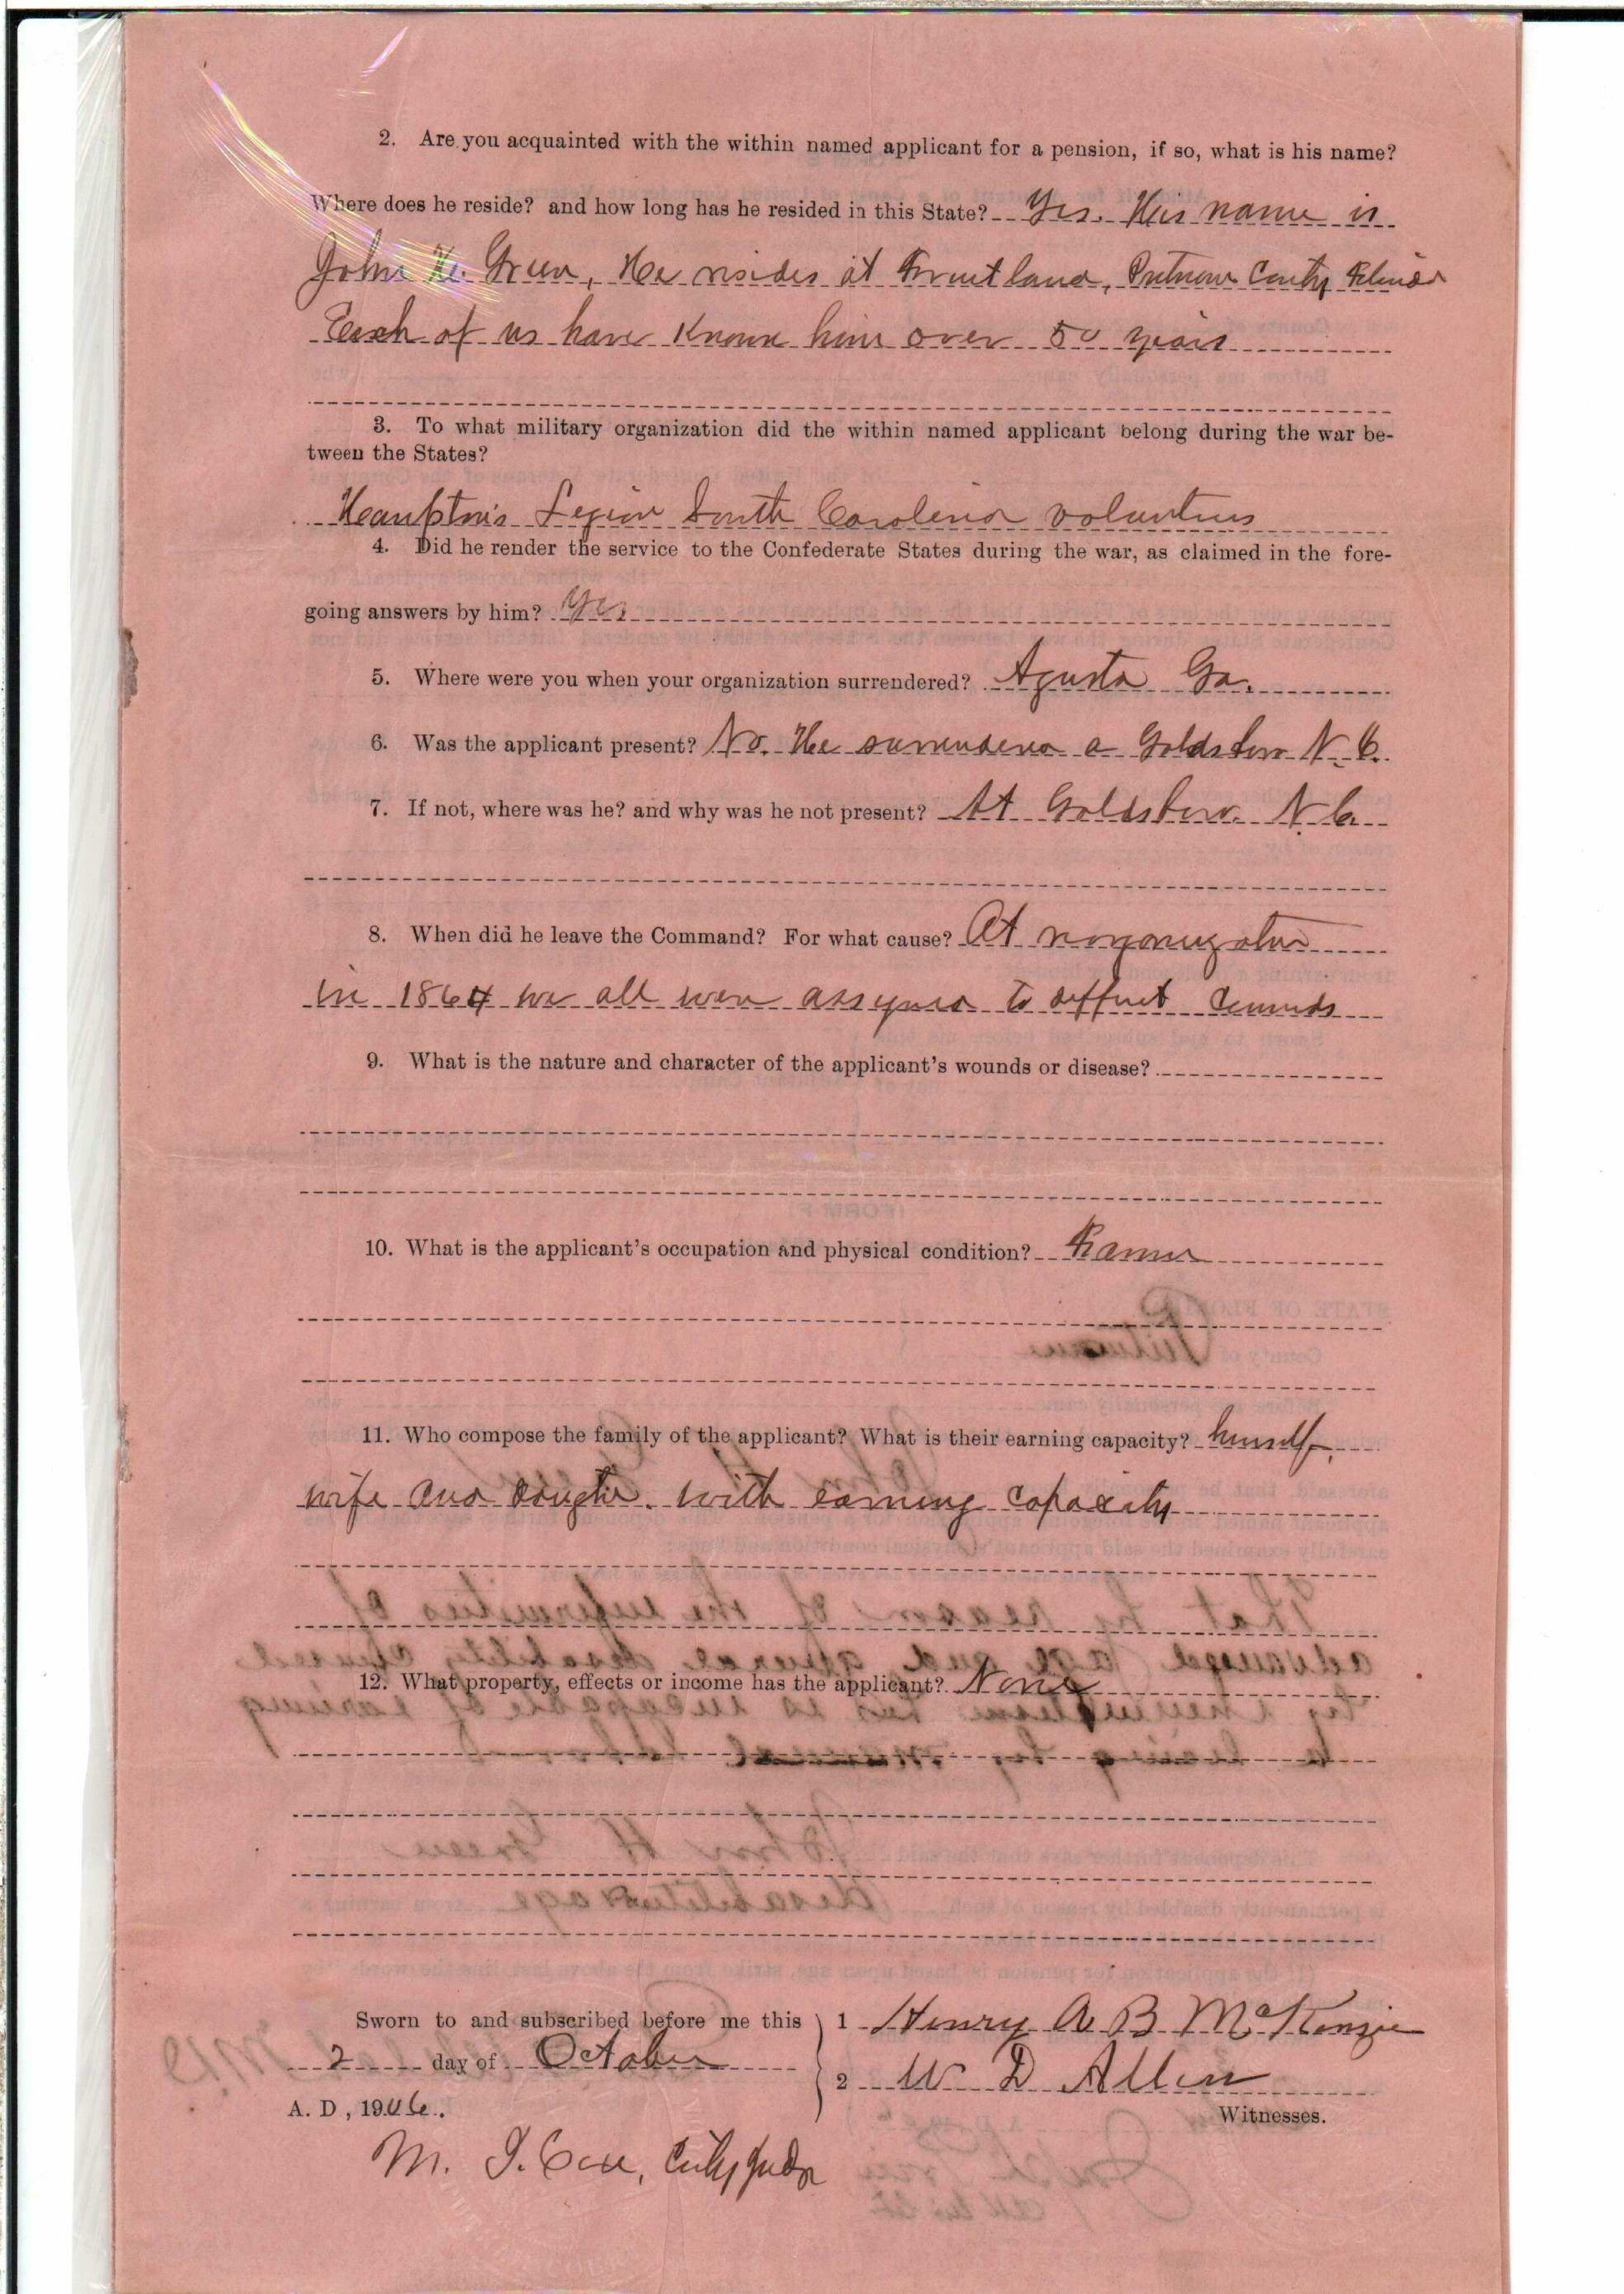 2. Are you acquainted with the within named applicant for a pension, if so, what is his name?
Where does he reside? and how long has he resided in this State? Yes. His name is
John H. Green, He resides at Fruitland, Putnam County Florida
Each of us have known him over 50 years
3. To what military organization did the within named applicant belong during the war be-
tween the States?
Hamptons Legion South Carolina volunteers
4. Did he render the service to the Confederate States during the war, as claimed in the fore-
going answers by him? Yes
5. Where were you when your organization surrendered? Agusta Ga.
6. Was the applicant present? No. He surrendered a Goldsboro N.C.
7. If not, where was he? and why was he not present? At Goldsboro. N.C.
8. When did he leave the Command? For what cause? At
in 1864 we all were assigned to
9. What is the nature and character of the applicant's wounds or disease?
10. What is the applicant's occupation and physical condition? Farmer
11. Who compose the family of the applicant? What is their earning capacity? himself,
wife and daughter. with earning capacity
12. What property, effects or income has the applicant? None
Sworn to and subscribed before me this 1 Henry A B McKenzie
2 day of October
2 W D Allen
A. D, 1906.
Witnesses.
M. I. Cox, Cnty Judge